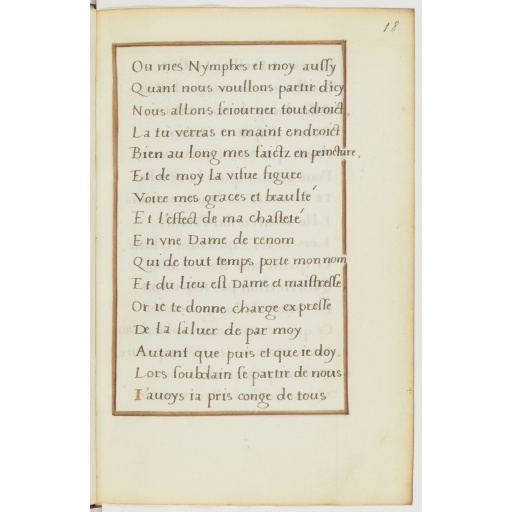 18
Ou mes Nymphes et moy aussy
Quant nous voullons partir d'icy
Nous allons seiourner tout droict.
La tu verras en maint endroict
Bien au long mes faictz en peincture.
Et de moy la vifue figure
Voire mes graces et beaulté
Et l'effect de ma chasteté
En vne Dame de renom
Qui de tout temps porte mon nom
Et du lieu est Dame et maistresse
Or ie te donne charge expresse
De la saluer de par moy
Autant que puis et que ie doy.
Lors soubdain se partir de nous
I'auoys ia pris conge de tous